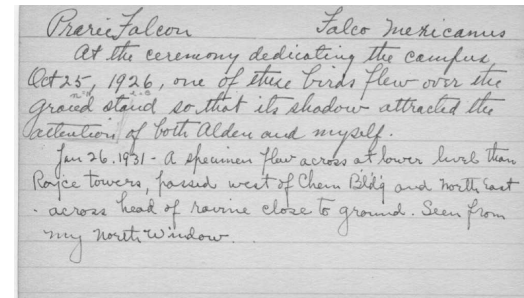 Prarie Falcon Falco Mexicanus
At the ceremony dedicating the campus,
Oct 25, 1926, one of these birds flew over the
grand stand so that its shadow attracted the
attention of both Alden and myself.
Jan 26. 1931 - A specimen flew across at lower level than
Royce towers, passed west of Chem Bldg and North East
across head of ravine close to ground. Seen from
my North Window.